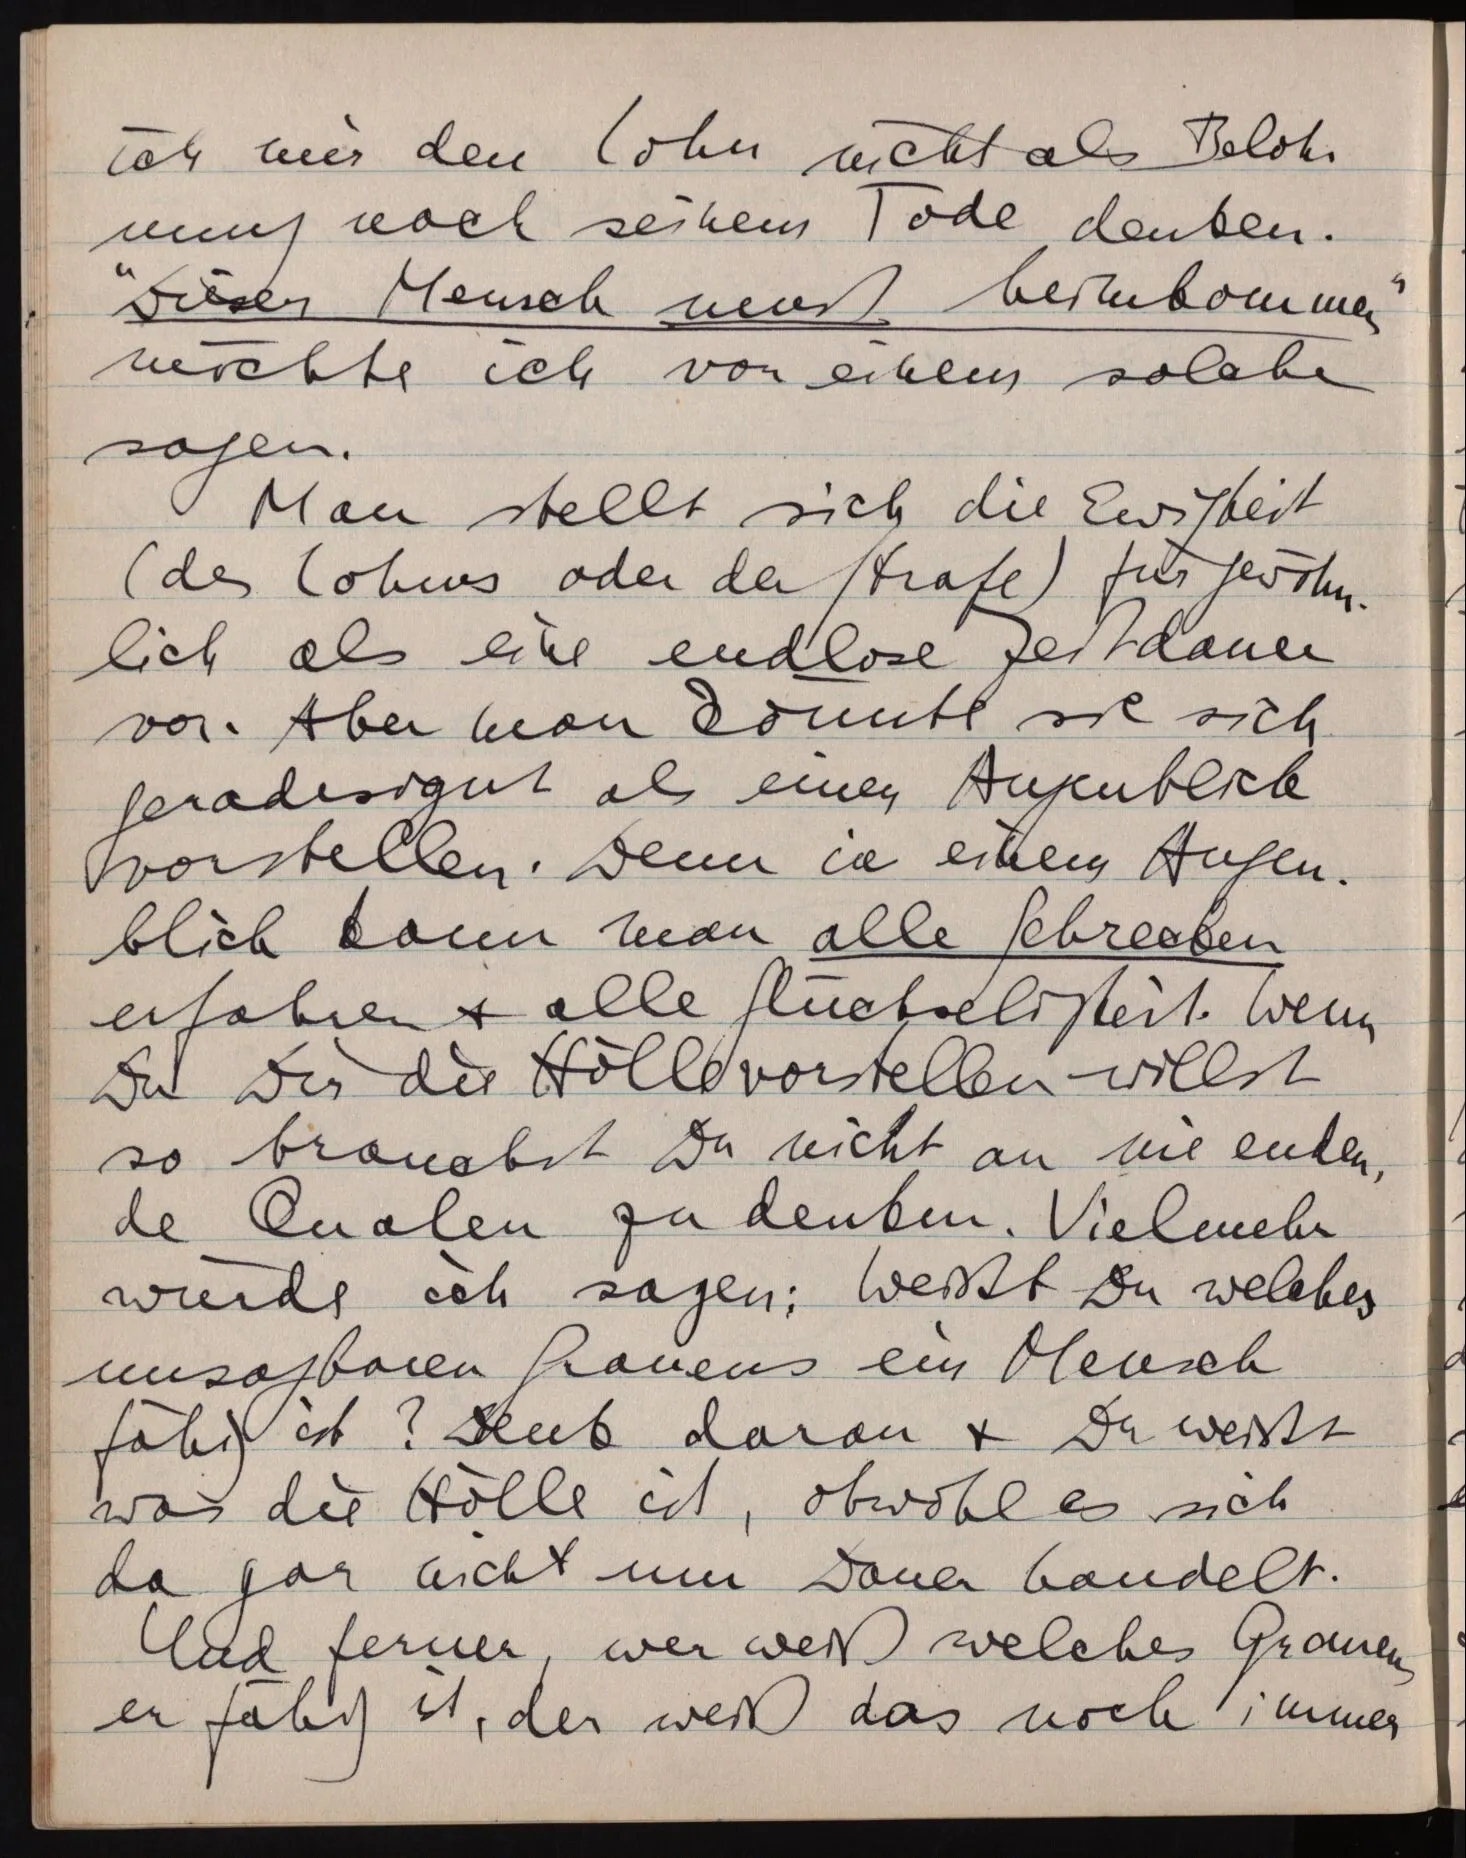 ich mir den Lohn nicht als Beloh-
nung nach seinem Tode denken.
"Dieser Mensch muß heimkommen"
möchte ich von einem solchen
sagen.
Man stellt sich die Ewigkeit
(des Lohnes oder der Strafe) für gewöhn-
lich als eine endlose Zeitdauer
vor. Aber man könnte sie sich
geradesogut als einen Augenblick
vorstellen. Denn in einem Augen-
blick kann man alle Schrecken
erfahren & alle Glückseligkeit. Wenn
Du Dir die Hölle vorstellen willst
so brauchst Du nicht an nie enden-
de Qualen zu denken. Vielmehr
würde ich sagen: Weißt Du welches
unsagbaren Grauens ein Mensch
fähig ist? Denk daran & Du weißt
was die Hölle ist, obwohl es sich
da gar nicht um Dauer handelt.
Und ferner, wer weiß welches Grauens
er fähig ist, der weiß das noch immer